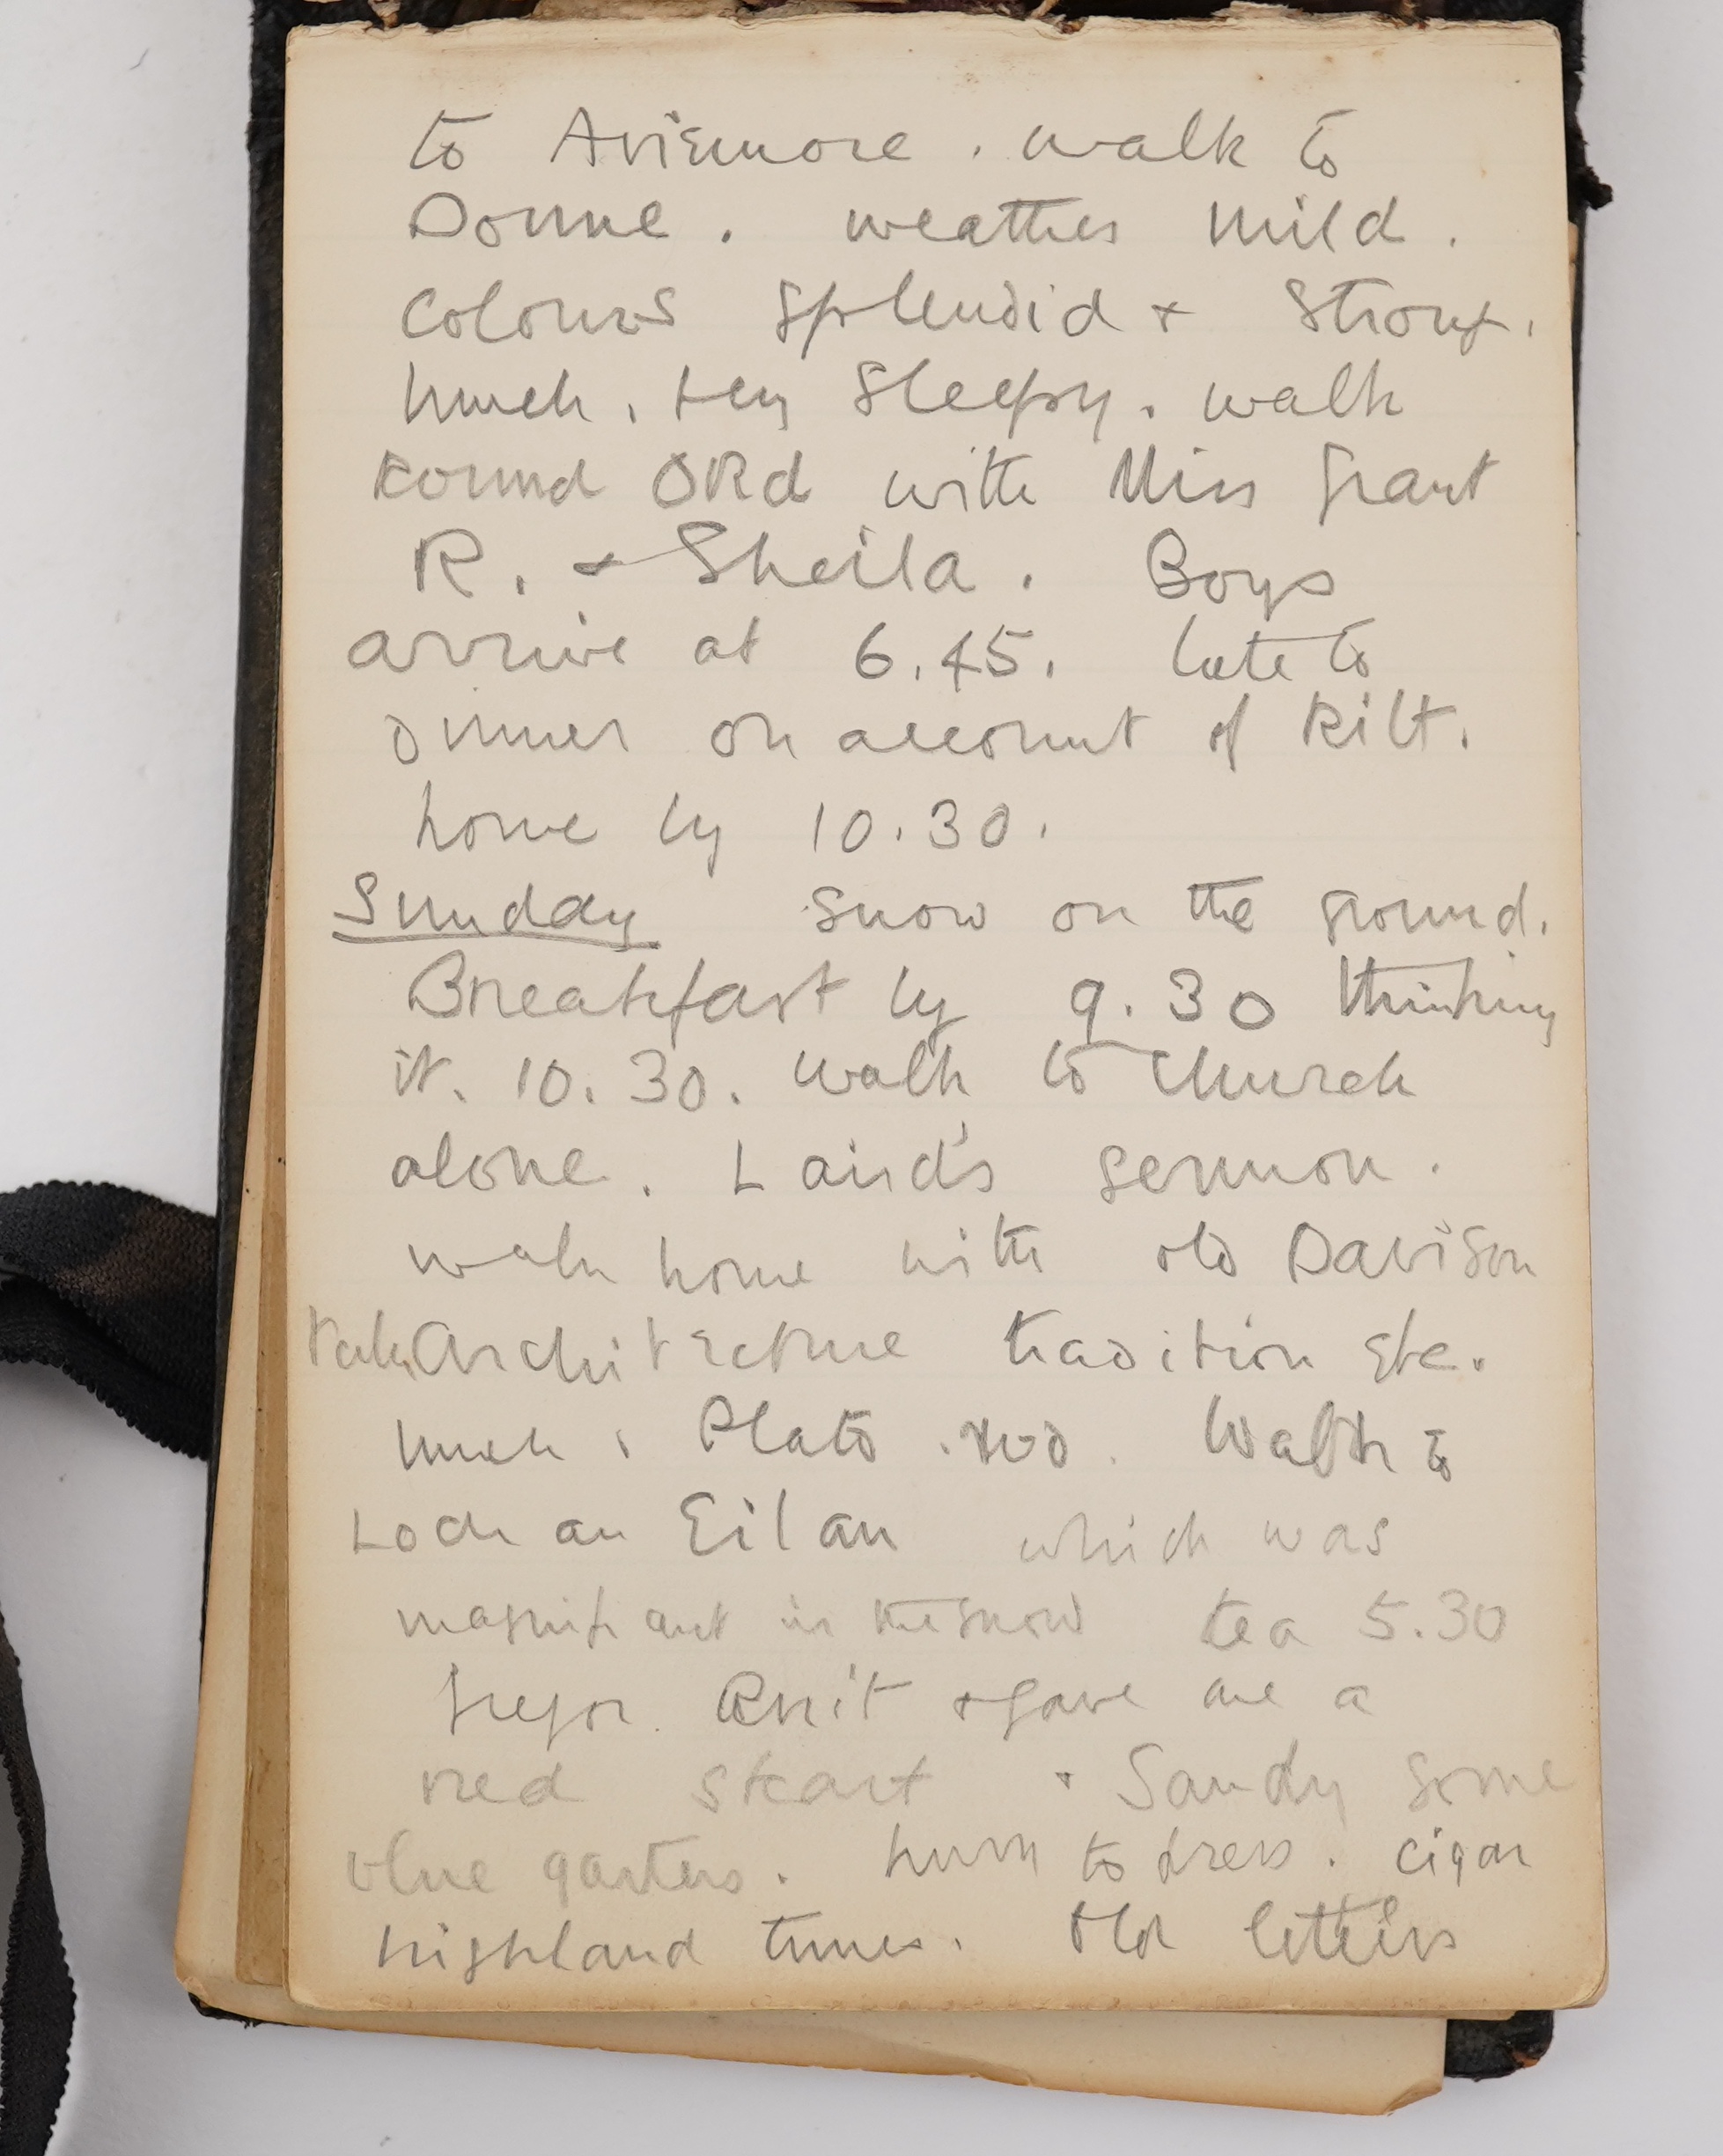 to Aviemore. walk to
Doune. weather mild.
Colours splendid + strong.
lunch. very sleepy. walk
round ORd with Miss Grant
R. + Sheila. Boys
arrive at 6.45. late to
dinner on account of kilt.
home by 10.30.
Sunday snow on the ground.
Breakfast by 9.30 thinking
it. 10.30. walk to church
alone. Laird's sermon.
walk home with old Davison
talk Architecture tradition etc.
lunch. Plato. Walk to
Loch an Eilan which was
magnificant in the snow tea 5.30
+ gave me a
red + Sandy some
blue garters. to dress. cigar
highland tunes. old letters